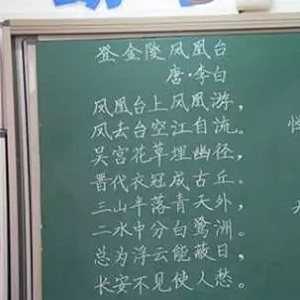 登金陵凤凰台
唐·李白
凤凰台上凤凰游，
凤去台空江自流。
吴宫花草埋幽径，
晋代衣冠成古丘。
三山半落青天外，
二水中分白鹭洲。
总为浮云能蔽日，
长安不见使人愁。